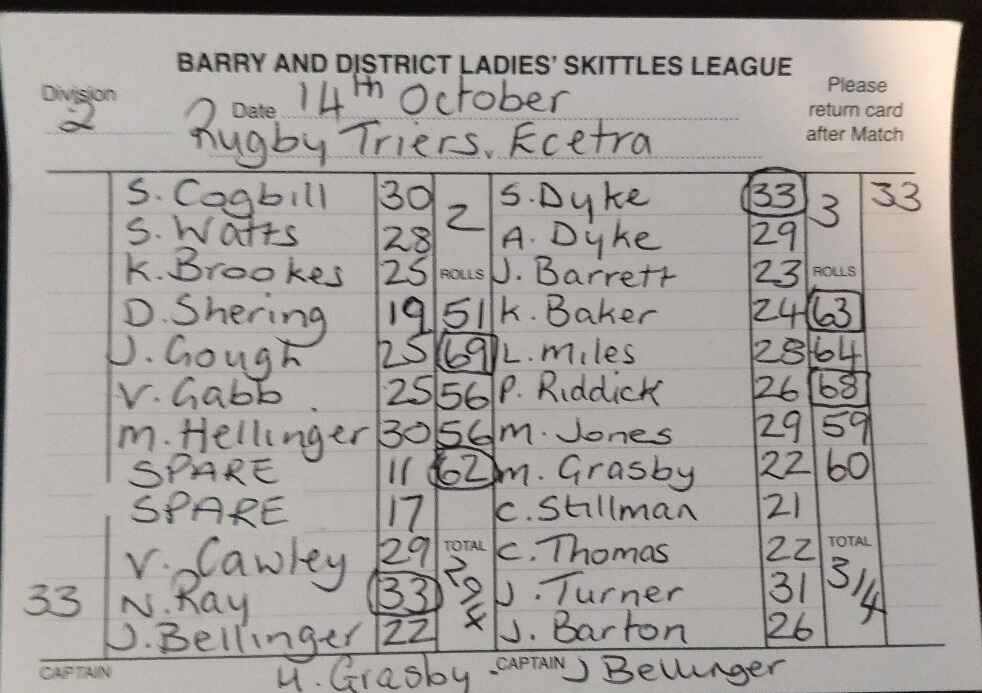 BARRY AND DISTRICT LADIES' SKITTLES LEAGUE
Division 2 Date 14th October Please return card after Match
Rugby Triers. Ecetra
S. Cogbill 30 2 S. Dyke 33 3 33
S. Watts 28 A. Dyke 29
K. Brookes 25 ROLLS J. Barrett 23 ROLLS
D. Shering 19 51 K. Baker 24 63
J. Gough 25 69 L. Miles 28 64
V. Gabb. 25 56 P. Riddick 26 68
M. Hellinger 30 56 M. Jones 29 59
SPARE 11 62 M. Grasby 22 60
SPARE 17 C. Stillman 21
V. Cawley 29 TOTAL 294 C. Thomas 22 TOTAL 314
33 N. Ray 33 J. Turner 31
J. Bellinger 22 J. Barton 26
CAPTAIN M. Grasby - CAPTAIN J Bellinger